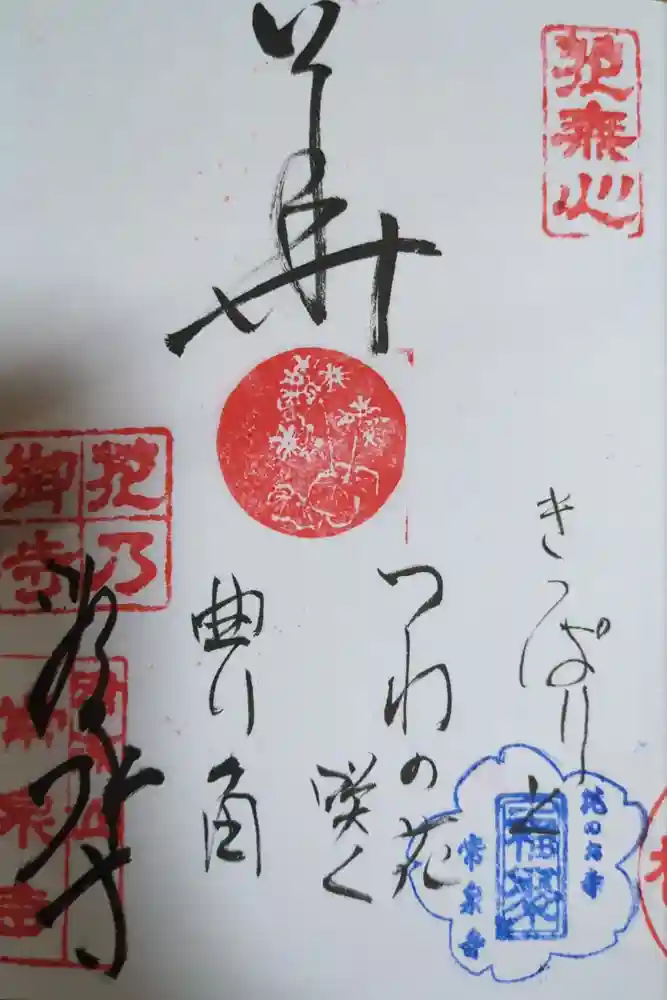 花無心
華
きっぱりと
つわの花
咲く
曲り角
花の寺
常泉寺
花乃
御寺
常泉寺